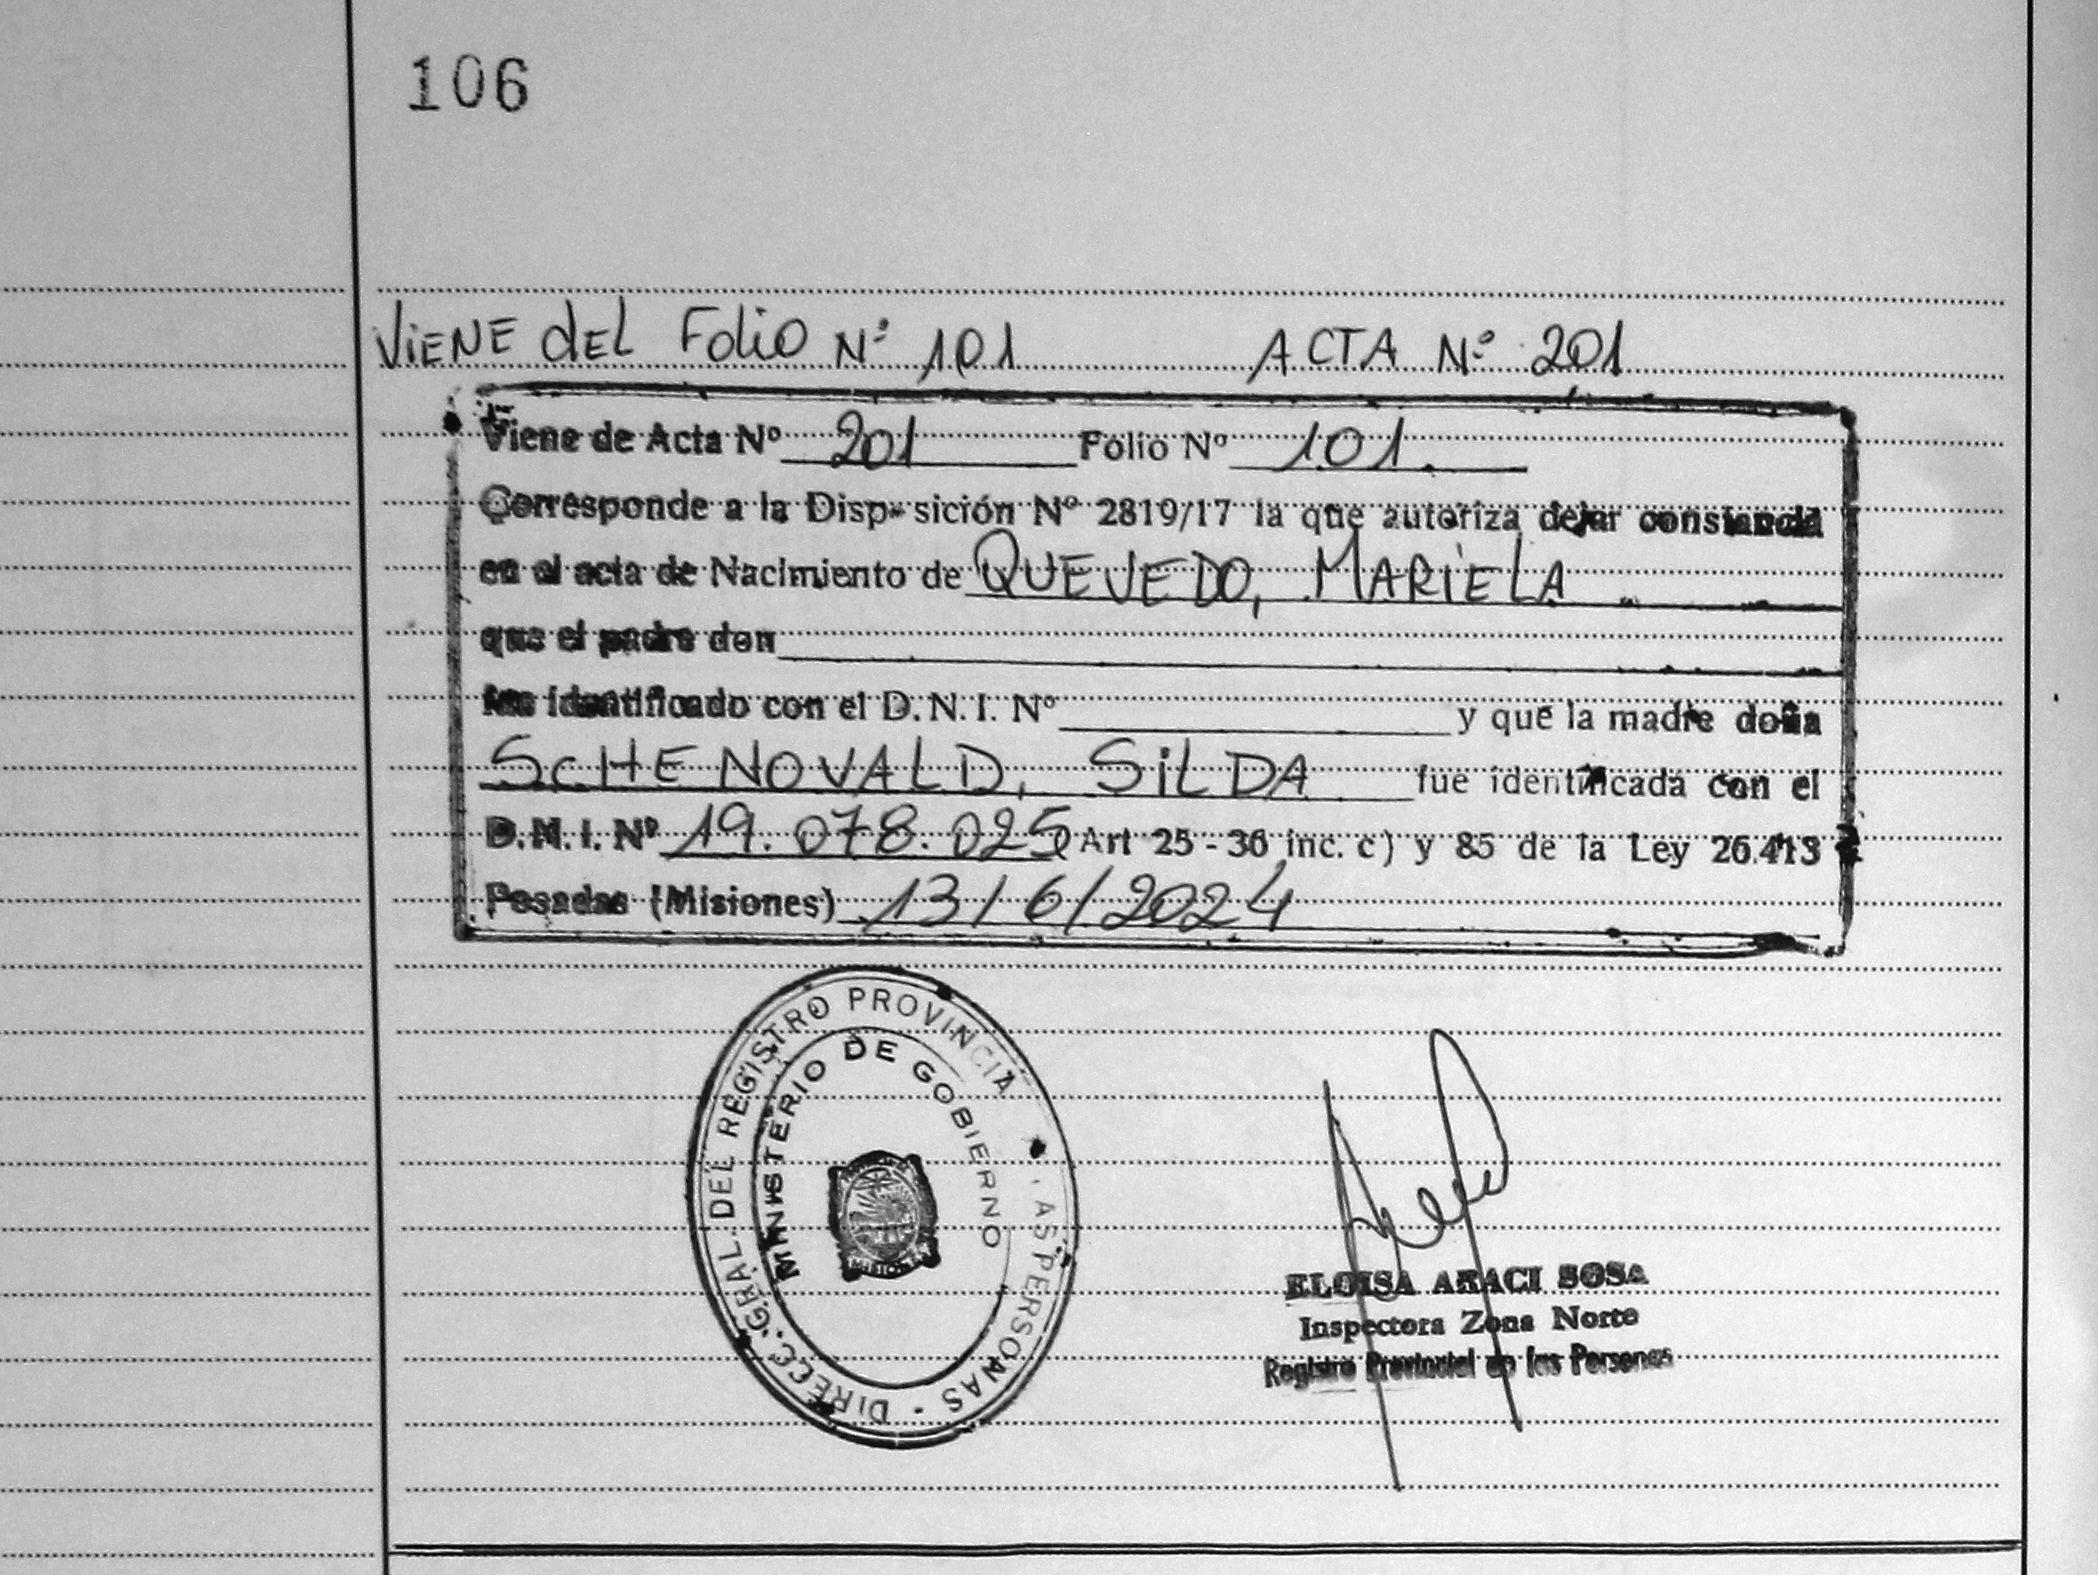 106
ViENE dEL Folio Nº 101 ACTA Nº 201
Viene de Acta Nº 201 Folio Nº 101.
Corresponde a la Disposición Nº 2819/17 la que autoriza dejar constancia
en el acta de Nacimiento de QUEVEDO, MARiELA
que el padre don
fue identificado con el D.N.I. Nº y que la madre doña
SCHENOVALD, SiLDA fue identificada con el
D.N.I. Nº 19.078.025 Art 25-36 inc. c) y 85 de la Ley 26.413
Posadas (Misiones) 13/6/2024
DIRECC. GRAL. DEL REGISTRO PROVINCIA AS PERSONAS -
MINISTERIO DE GOBIERNO
MISIONES
ELOISA ARACI SOSA
Inspectora Zona Norte
Registro Provincial de las Personas